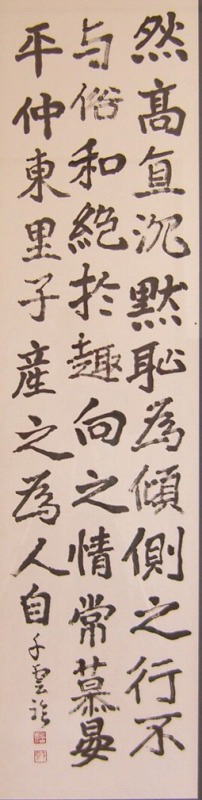 然高直沉默恥為傾側之行不
与俗和絶於趣向之情常慕晏
平仲東里子產之為人自
千雲